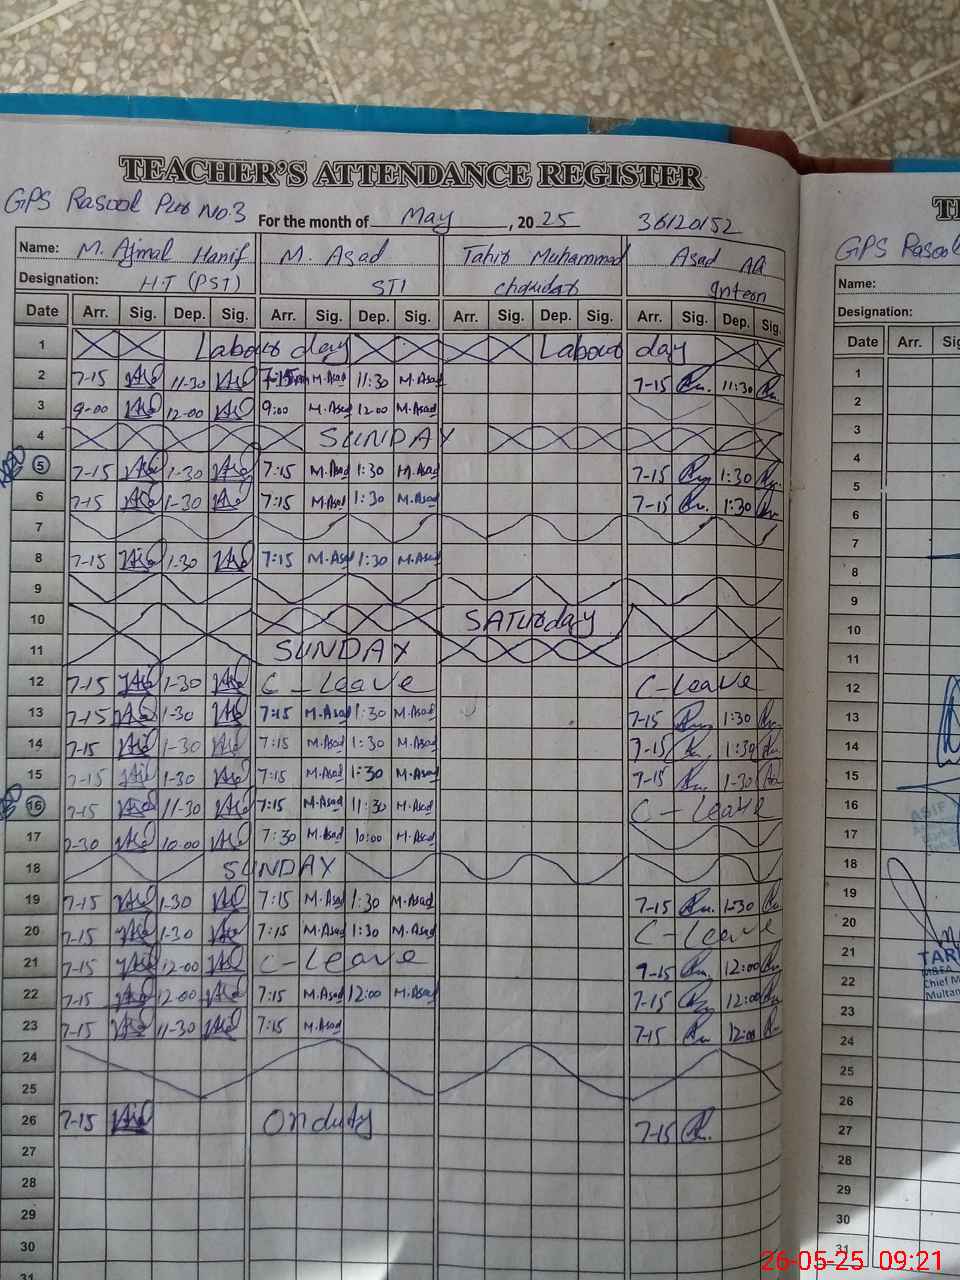 TEACHER'S ATTENDANCE REGISTER
GPS Rasool Pur No.3 For the month of May, 2025 36120152
Name: M. Ajmal Hanif M. Asad Tahir Muhammad Asad Ali
Designation: H.T (PST) STI Chokidar Intern
Date Arr. Sig. Dep. Sig. Arr. Sig. Dep. Sig. Arr. Sig. Dep. Sig. Arr. Sig. Dep. Sig.
1 Labour day Labour day
2 7-15 11-30 7:15 M.Asad 11:30 M.Asad 7-15 11:30
3 9-00 12-00 9:00 M.Asad 12:00 M.Asad
4 SUNDAY
5 7-15 1-30 7:15 M.Asad 1:30 M.Asad 7-15 1:30
6 7-15 1-30 7:15 M.Asad 1:30 M.Asad 7-15 1:30
7
8 7-15 1-30 7:15 M.Asad 1:30 M.Asad
9
10 SATurday
11 SUNDAY
12 7-15 1-30 C-Leave C-Leave
13 7-15 1-30 7:15 M.Asad 1:30 M.Asad 7-15 1:30
14 7-15 1-30 7:15 M.Asad 1:30 M.Asad 7-15 1:30
15 7-15 1-30 7:15 M.Asad 1:30 M.Asad 7-15 1-30
16 7-15 11-30 7:15 M.Asad 11:30 M.Asad C-Leave
17 7-30 10-00 7:30 M.Asad 10:00 M.Asad
18 SUNDAY
19 7-15 1-30 7:15 M.Asad 1:30 M.Asad 7-15 1:30
20 7-15 1-30 7:15 M.Asad 1:30 M.Asad C-Leave
21 7-15 12-00 C-Leave 7-15 12:00
22 7-15 12-00 7:15 M.Asad 12:00 M.Asad 7-15 12:00
23 7-15 11-30 7:15 M.Asad 7-15 12:00
24
25
26 7-15 On duty 7-15
27
28
29
30
31
GPS Rasool
Name:
Designation:
Date Arr.
1
2
3
4
5
6
7
8
9
10
11
12
13
14
15
16
ASIF
17
18
19
20
21
TAR
22
Chief M
Multan
23
24
25
26
27
28
29
30
31
26-05-25 09:21